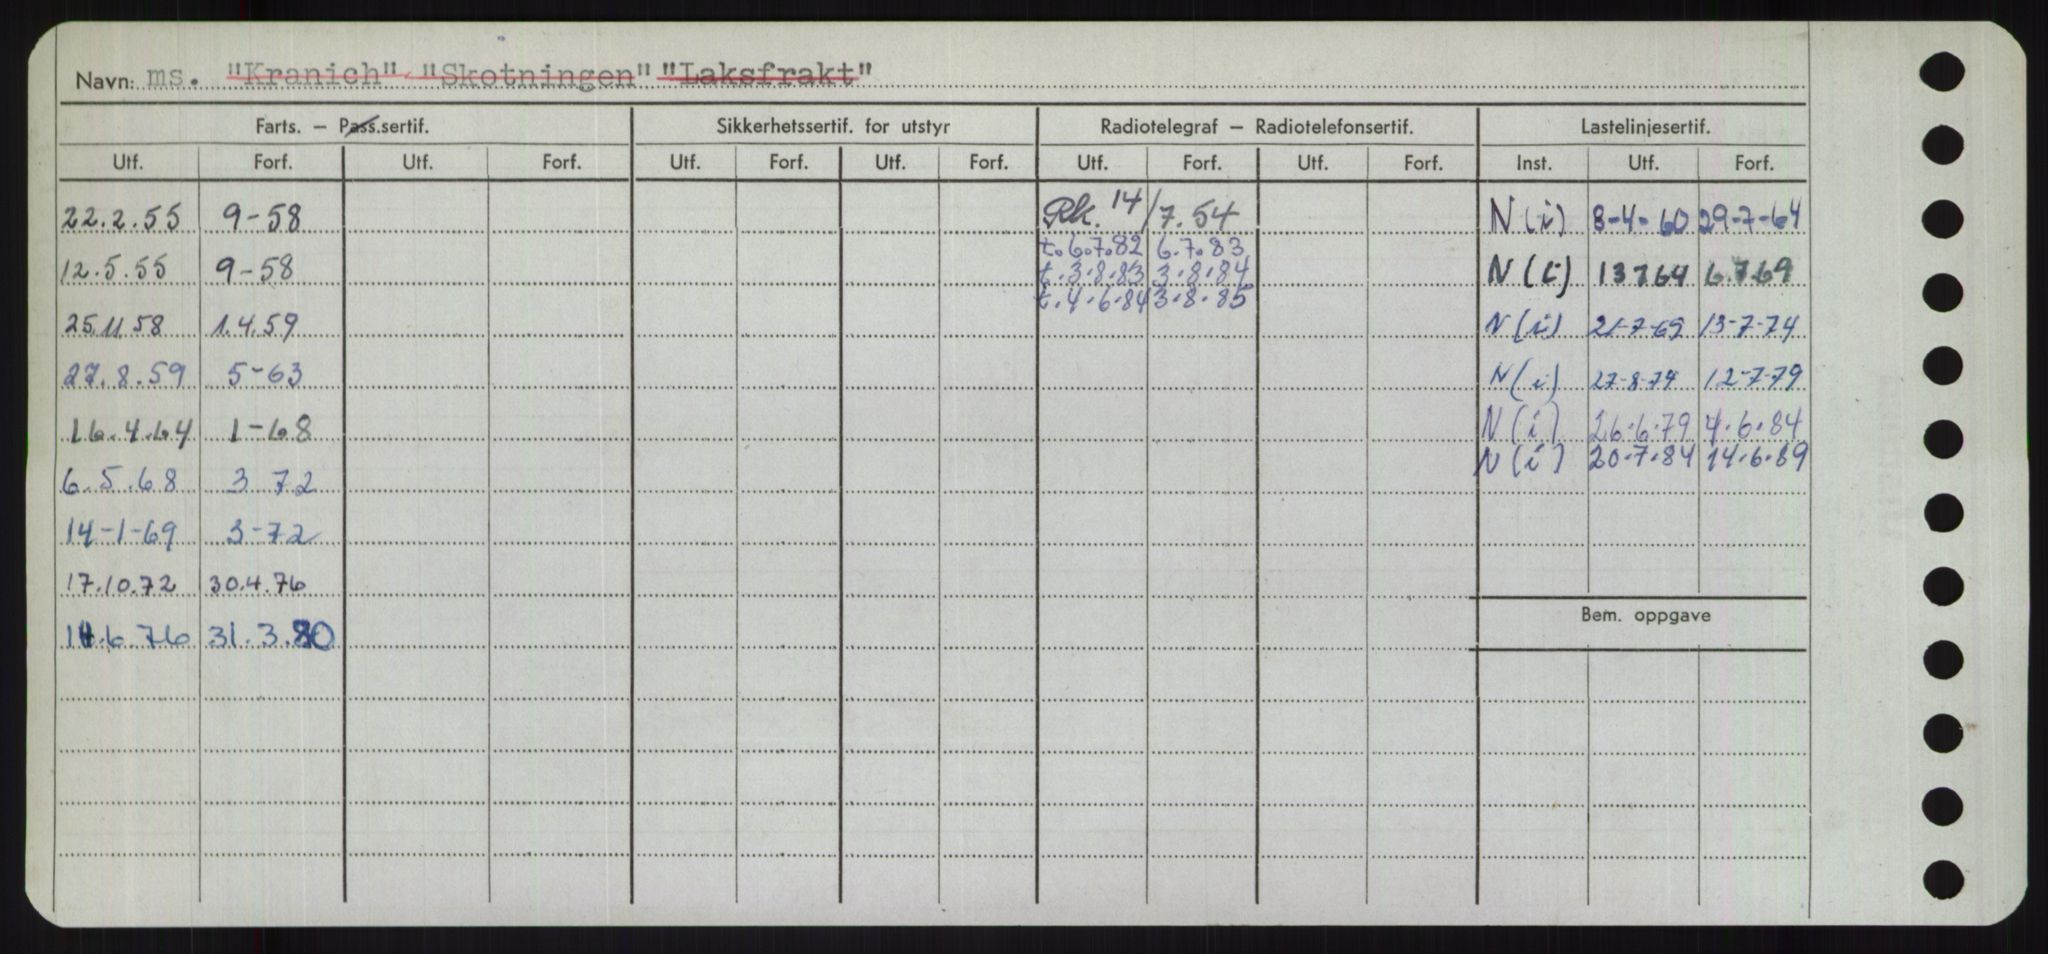 Navn: ms. "Kranich" "Skotningen" "Laksfrakt"
Farts. — Pass.sertif. Sikkerhetssertif. for utstyr Radiotelegraf — Radiotelefonsertif. Lastelinjesertif.
Utf. Forf. Utf. Forf. Utf. Forf. Utf. Forf. Utf. Forf. Utf. Forf. Inst. Utf. Forf.
22.2.55 9-58 Rk. 14/7.54 N(i) 8-4-60 29-7-64
t.6.7.82 6.7.83
12.5.55 9-58 t.3.8.83 3.8.84 N(i) 13764 6.7.69
t.4.6.84 3.8.85
25.11.58 1.4.59 N(i) 21-7-69 13-7-74
27.8.59 5-63 N(i) 27-8-74 12-7-79
16.4.64 1-68 N(i) 26.6.79 4.6.84
6.5.68 3 72 N(i) 20.7.84 14.6.89
14-1-69 3-72
17.10.72 30.4.76
Bem. oppgave
6.76 31.3.80